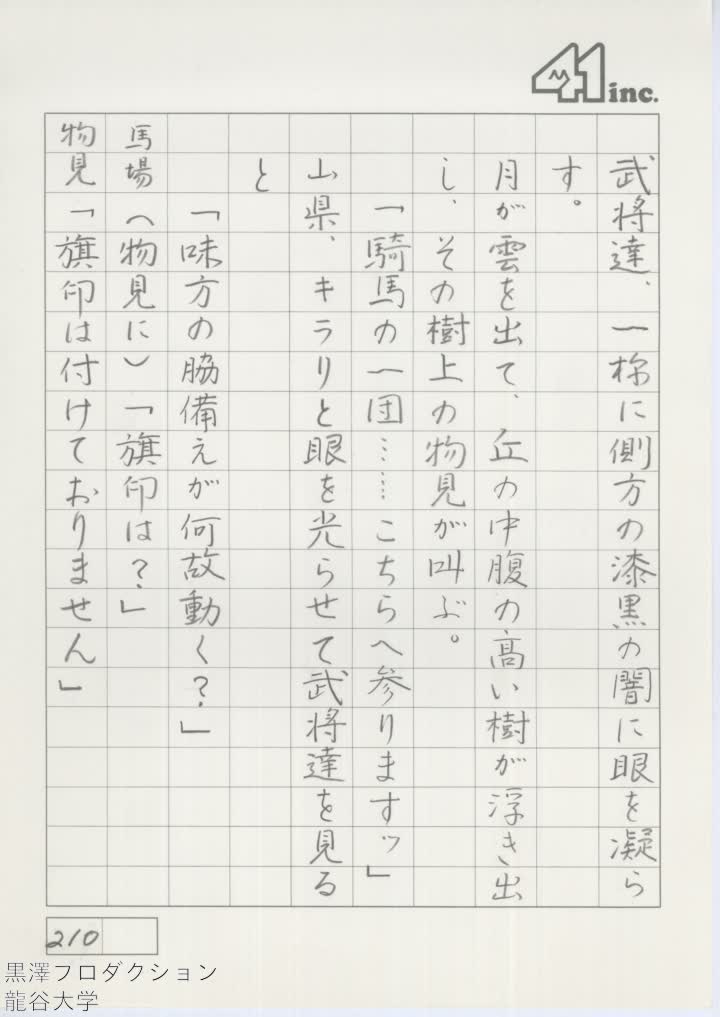 41 inc.
武将達、一様に側方の漆黒の闇に眼を凝ら
す。
月が雲を出て、丘の中腹の高い樹が浮き出
し、その樹上の物見が叫ぶ。
「騎馬の一団……こちらへ参りますッ」
山県、キラリと眼を光らせて武将達を見る
と
「味方の脇備えが何故動く?」
馬場(物見に)「旗印は?」
物見「旗印は付けておりません」
210
黒澤フロダクション
龍谷大学